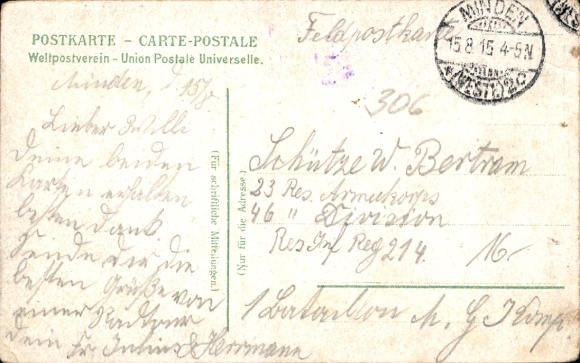 POSTKARTE – CARTE-POSTALE
Weltpostverein – Union Postale Universelle.
Feldpostkarte
MINDEN
15.8.15. 4-5N
* (WESTF.) 2c
306
Minden, d. 15/8
Lieber Willi
Deine beiden
Karten erhalten
besten Dank
sende dir die
besten Grüße von
einer Radtour
dein Fr. Julius & Herrmann
(Für schriftliche Mitteilungen.)
(Nur für die Adresse.)
Schütze W. Bertram
23 Res. Armeekorps
46 " Division
Res Inf Reg 214.
1 Bataillon M. G Komp